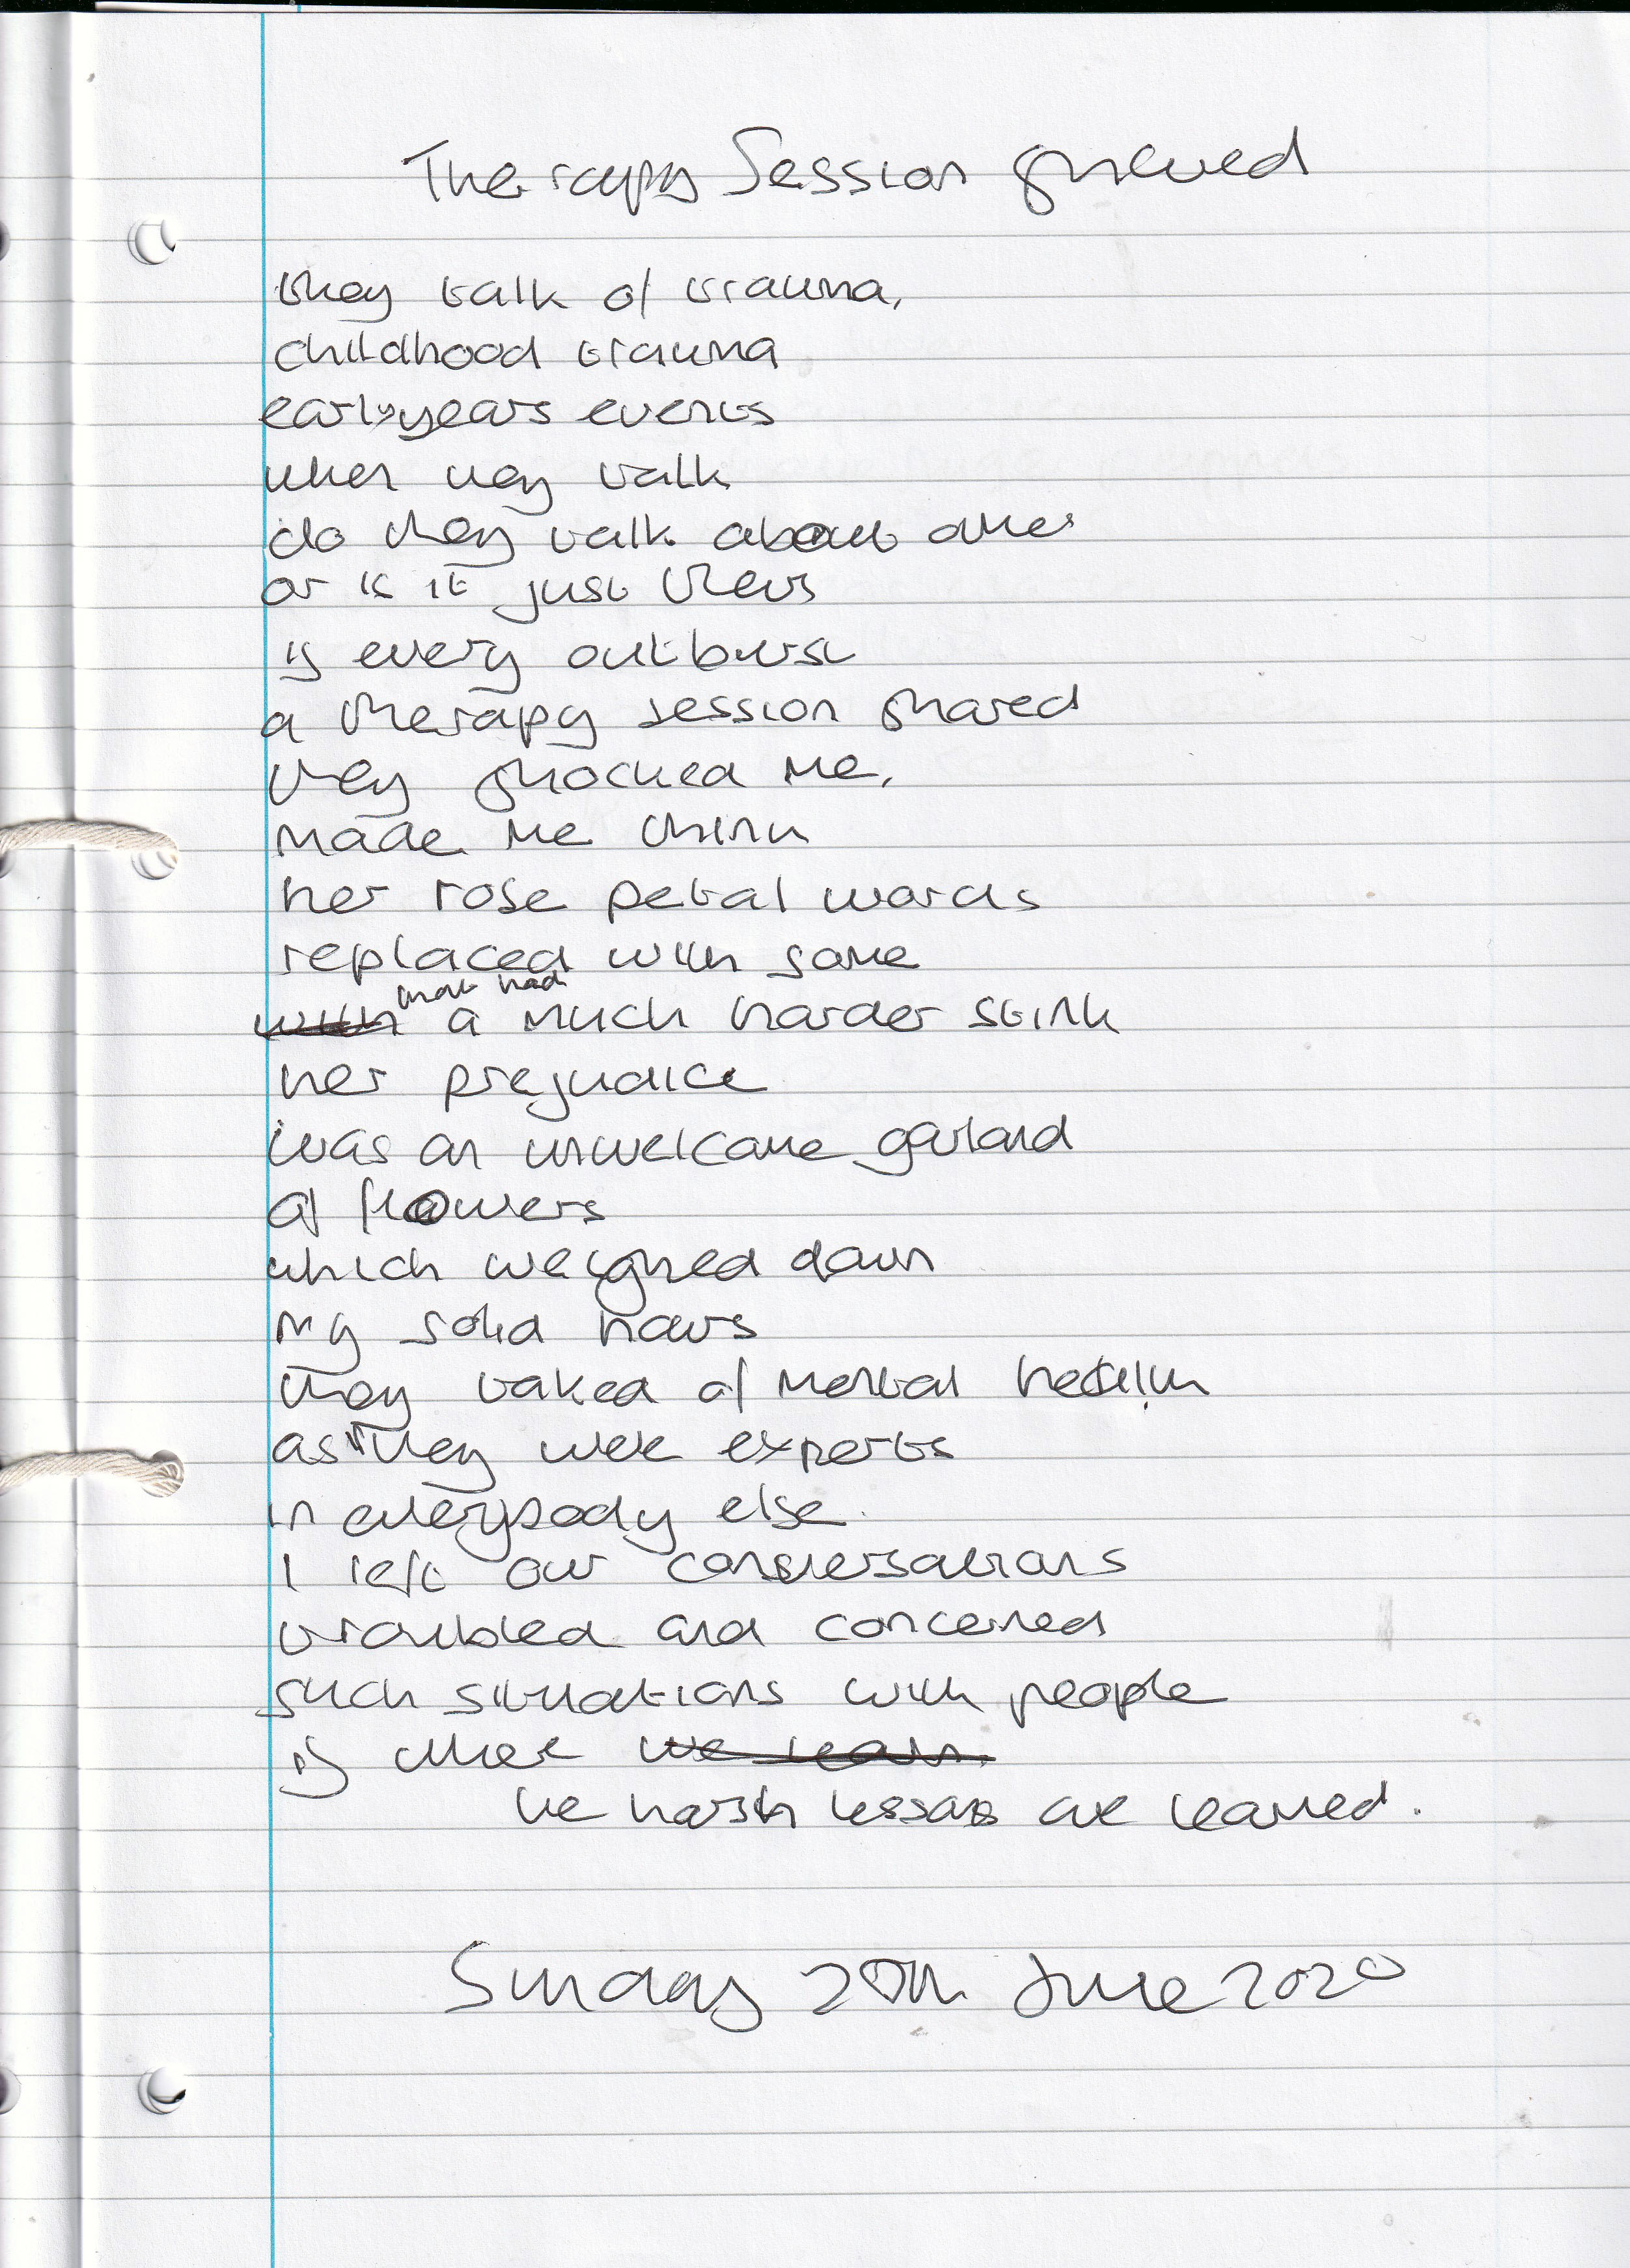 Therapy Session Shared
they talk of trauma,
childhood trauma
early years events
when they talk
do they talk about other
or is it just theirs
is every outburst
a therapy session shared
they shocked me,
made me think
her rose petal words
replaced with some
that had
with a much harder stink
her prejudice
was an unwelcome garland
of flowers
which weighed down
my solid hours
they talked of mental health
as they were experts
in everybody else.
I left our conversations
troubled and concerned
such situations with people
is where we learn.
the harsh lessons are learned.
Sunday 20th June 2020